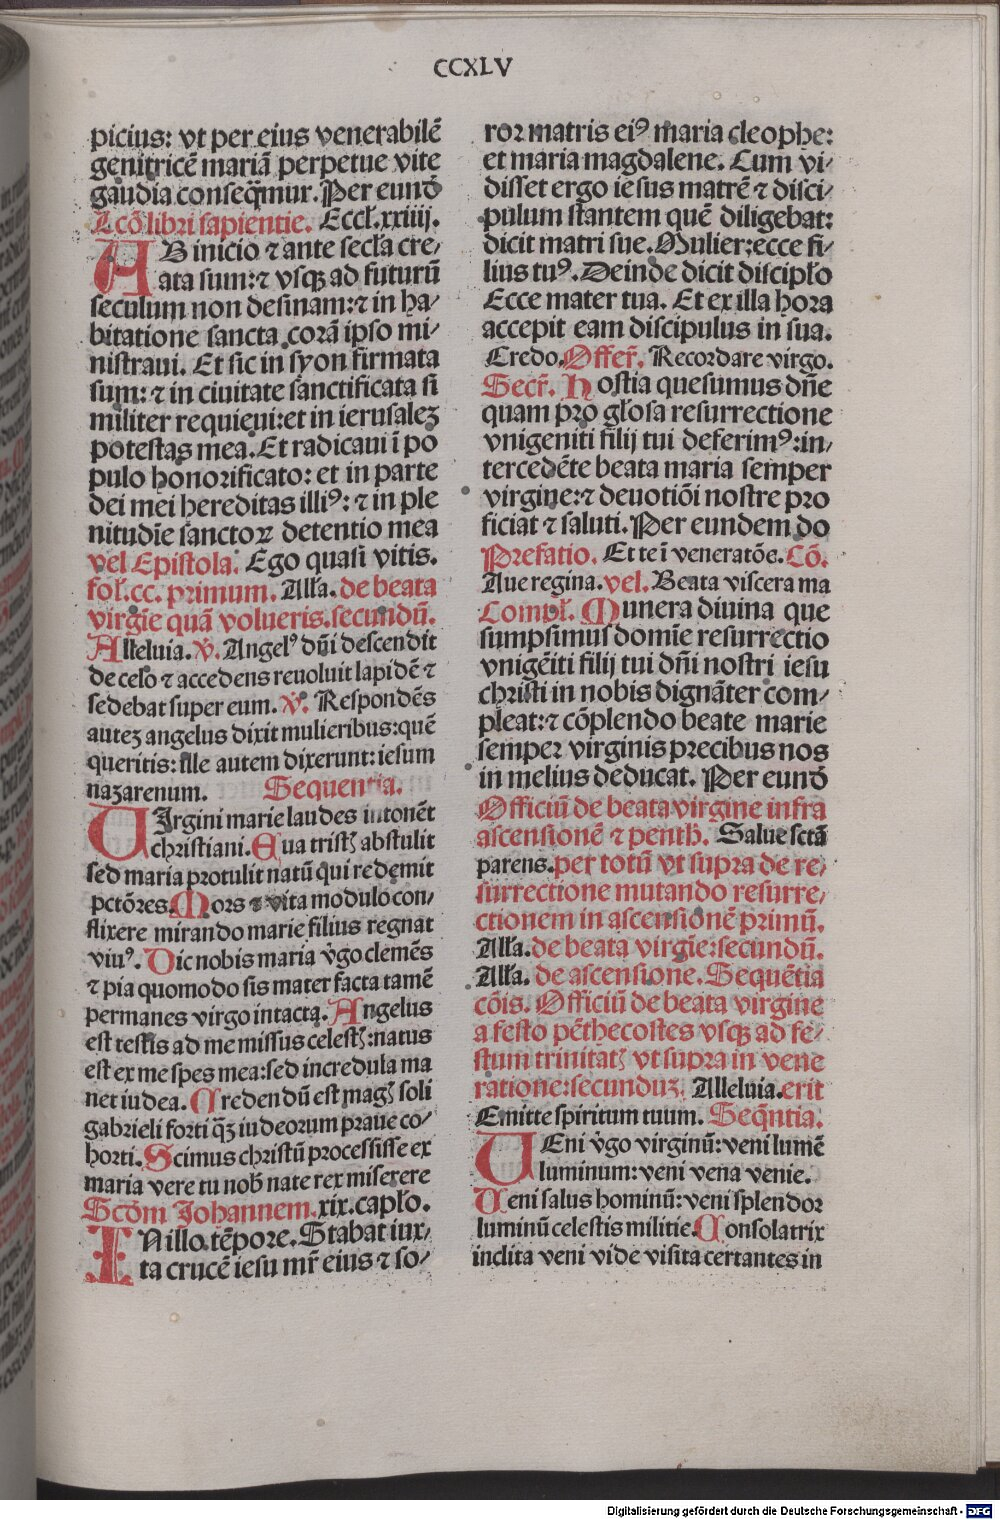 CCXLV
picius: vt per eius venerabilē
genitricē mariā perpetue vite
gaudia conseq̄mur. Per eund̄
Lcō libri sapientie. Eccł. xxiiij.
AB inicio ⁊ ante secła cre-
ata sum: ⁊ vsqꝫ ad futurū
seculum non desinam: ⁊ in ha/
bitatione sancta corā ipso mi/
nistraui. Et sic in syon firmata
sum: ⁊ in ciuitate sanctificata si
militer requieui: et in ierusalez
potestas mea. Et radicaui ī po
pulo honorificato: et in parte
dei mei hereditas illiꝰ: ⁊ in ple
nitudīe sanctoꝝ detentio mea
vel Epistola. Ego quasi vitis.
foł. cc. primum. Alła. de beata
virgīe quā volueris. secundū.
Alleluia. ꝟ. Angelꝰ dn̄i descendit
de celo ⁊ accedens reuoluit lapidē ⁊
sedebat super eum. ꝟ. Respondēs
autez angelus dixit mulieribus: quē
queritis: ille autem dixerunt: iesum
nazarenum. Sequentia.
VIrgini marie laudes intonēt
christiani. Eua tristꝭ abstulit
sed maria protulit natū qui redemit
pctōres. Mors ⁊ vita modulo con/
flixere mirando marie filius regnat
viuꝰ. Dic nobis maria v̄go clemēs
⁊ pia quomodo sis mater facta tamē
permanes virgo intacta. Angelus
est testis ad me missus celestꝭ: natus
est ex me spes mea: sed incredula ma
net iudea. Credendū est magꝭ soli
gabrieli forti q̄ꝫ iudeorum praue co/
horti. Scimus christū processisse ex
maria vere tu nob̄ nate rex miserere
Scd̄m Johannem. xix. capło.
IN illo tēpore. Stabat iux/
ta crucē iesu mr̄ eius ⁊ so/
ror matris eiꝰ maria cleophe:
et maria magdalene. Cum vi/
disset ergo iesus matrē ⁊ disci/
pulum stantem quē diligebat:
dicit matri sue. Mulier: ecce fi/
lius tuꝰ. Deinde dicit discipło
Ecce mater tua. Et ex illa hora
accepit eam discipulus in sua.
Credo. Offer̄. Recordare virgo.
Secr̄. Hostia quesumus dn̄e
quam pro głosa resurrectione
vnigeniti filij tui deferimꝰ: in/
tercedēte beata maria semper
virgine: ⁊ deuotiōi nostre pro
ficiat ⁊ saluti. Per eundem do
Prefatio. Et te ī veneratōe. Cō.
Aue regina. vel. Beata viscera ma
Compł. Munera diuina que
sumpsimus domīe resurrectio
vnigēiti filij tui dn̄i nostri iesu
christi in nobis dignāter com/
pleat: ⁊ cōplendo beate marie
semper virginis precibus nos
in melius deducat. Per eund̄
Officiū de beata virgine infra
ascensionē ⁊ penth̄. Salue sctā
parens. per totū vt supra de re/
surrectione mutando resurre/
ctionem in ascensionē primū.
Alła. de beata virgīe: secundū.
Alła. de ascensione. Sequētia
cōis. Officiū de beata virgine
a festo pēthecostes vsqꝫ ad fe/
stum trinitatꝭ vt supra in vene
ratione: secunduz. Alleluia. erit
Emitte spiritum tuum. Seq̄ntia.
VEni v̄go virginū: veni lumē
luminum: veni vena venie.
Veni salus hominū: veni splendor
luminū celestis militie. Consolatrix
inclita veni vide visita certantes in
Digitalisierung gefördert durch die Deutsche Forschungsgemeinschaft - DFG